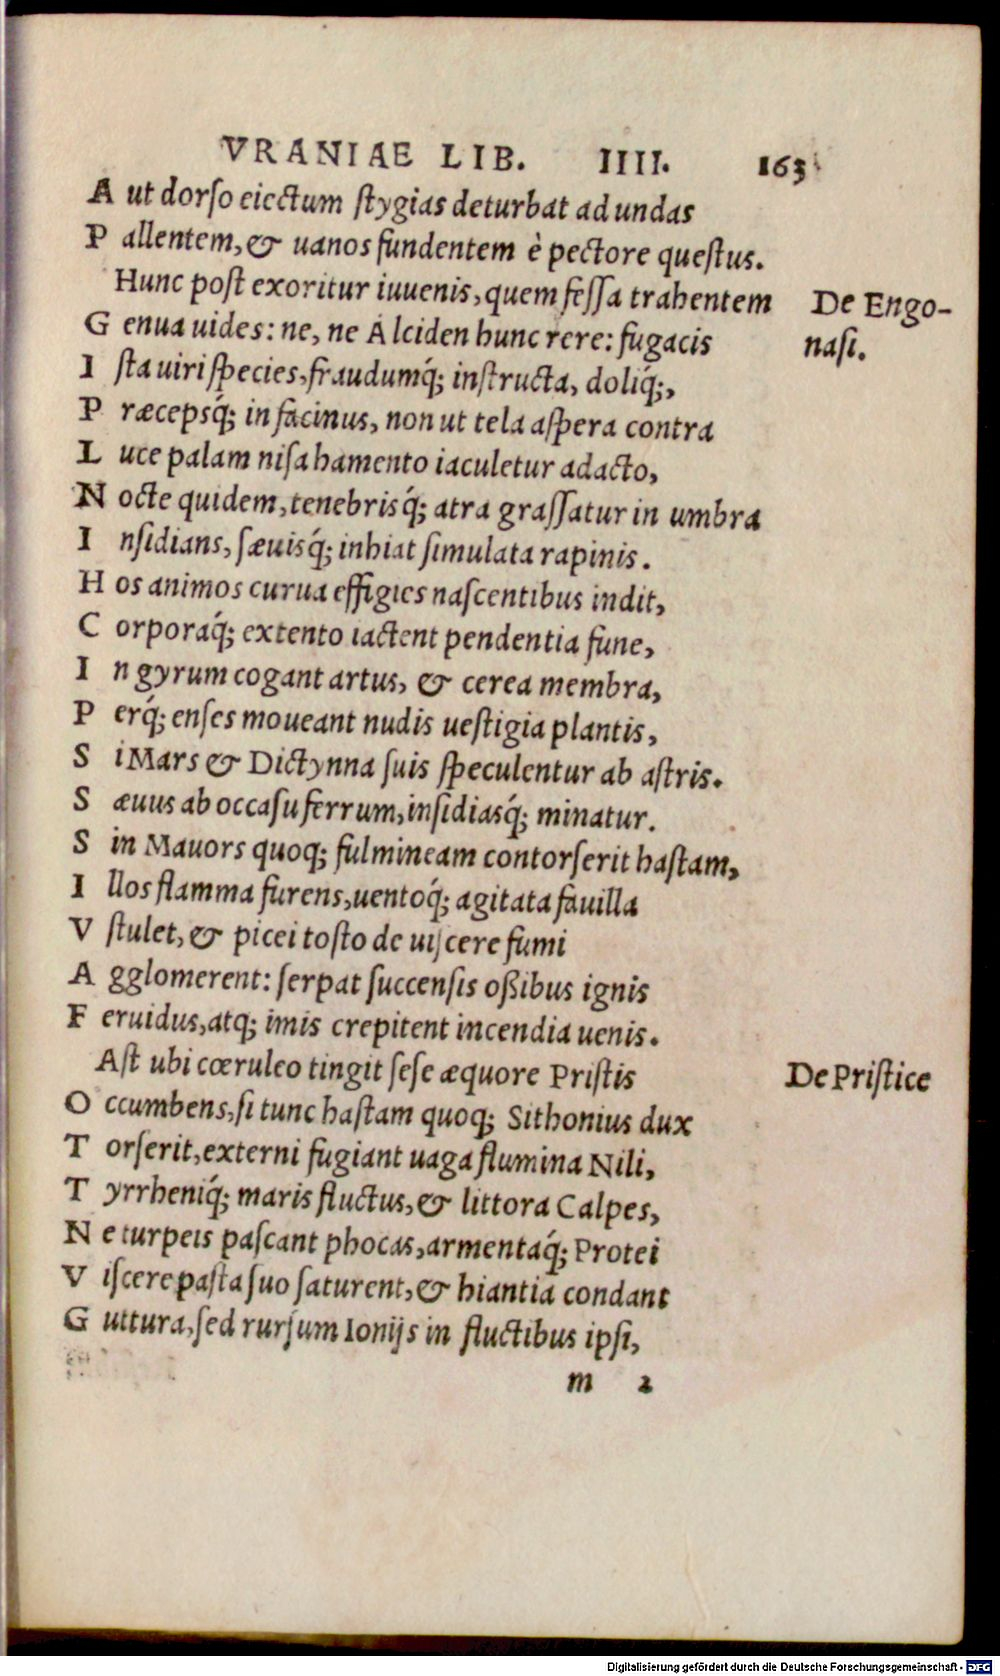 VRANIAE LIB. IIII. 163
Aut dorso eiectum stygias deturbat ad undas
Pallentem, & uanos fundentem è pectore questus.
Hunc post exoritur iuuenis, quem fessa trahentem
De Engo-
Genua uides: ne, ne Alciden hunc rere: fugacis
nasi.
Ista uiri species, fraudumq́; instructa, doliq́;,
Præcepsq́; in facinus, non ut tela aspera contra
Luce palam nisa hamento iaculetur adacto,
Nocte quidem, tenebrisq́; atra grassatur in umbra
Insidians, sæuisq́; inhiat simulata rapinis.
Hos animos curua effigies nascentibus indit,
Corporaq́; extento iactent pendentia fune,
In gyrum cogant artus, & cerea membra,
Perq́; enses moueant nudis uestigia plantis,
Si Mars & Dictynna suis speculentur ab astris.
Sæuus ab occasu ferrum, insidiasq́; minatur.
Sin Mauors quoq; fulmineam contorserit hastam,
Illos flamma furens, uentoq́; agitata fauilla
Vstulet, & picei tosto de uiscere fumi
Agglomerent: serpat succensis oßibus ignis
Feruidus, atq; imis crepitent incendia uenis.
Ast ubi cœruleo tingit sese æquore Pristis
De Pristice
Occumbens, si tunc hastam quoq; Sithonius dux
Torserit, externi fugiant uaga flumina Nili,
Tyrrheniq́; maris fluctus, & littora Calpes,
Ne turpeis pascant phocas, armentaq́; Protei
Viscere pasta suo saturent, & hiantia condant
Guttura, sed rursum Ionijs in fluctibus ipsi,
m 2
Digitalisierung gefördert durch die Deutsche Forschungsgemeinschaft - DFG